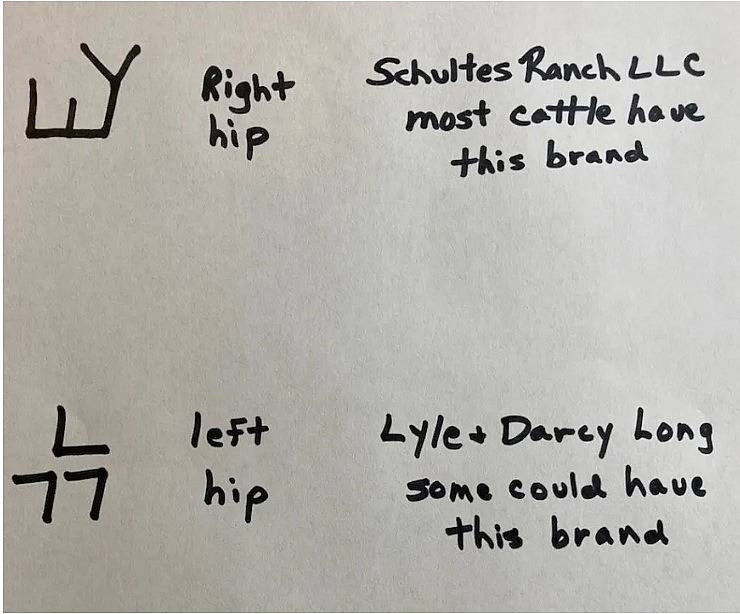 Right
hip
Schultes Ranch LLC
most cattle have
this brand
L
77
left
hip
Lyle + Darcy Long
some could have
this brand